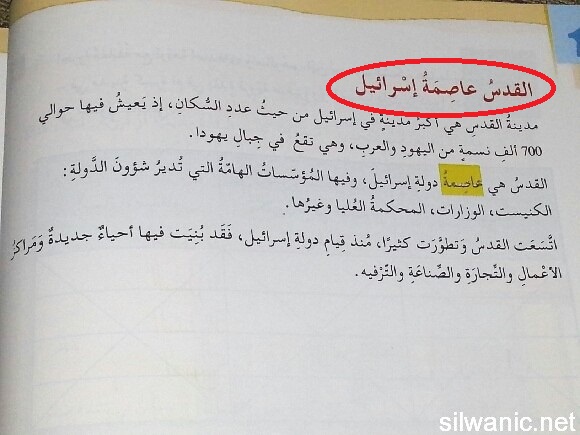 القدسُ عاصِمَةُ إسْرائيل
مدينةُ القدسِ هي أكبرُ مدينةٍ في إسرائيل من حيثُ عددِ السُّكانِ، إذ يَعيشُ فيها حوالي
700 ألفِ نسمةٍ من اليهودِ والعربِ، وهي تقعُ في جبالِ يهودا.
القدسُ هي عاصِمةُ دولةِ إسرائيلَ، وفيها المُؤسّساتُ الهامّةُ التي تُديرُ شؤونَ الدَّولةِ:
الكنيست، الوزارات، المحكمةُ العُليا وغيرُها.
اتَّسَعَت القدسُ وَتطوَّرَت كثيرًا، مُنذ قِيامِ دولةِ إسرائيل، فَقَد بُنِيَت فيها أحياءٌ جديدةٌ وَمَراكزُ
الأعْمالِ والتِّجارَةِ والصِّناعَةِ والتّرْفيه.
silwanic.net